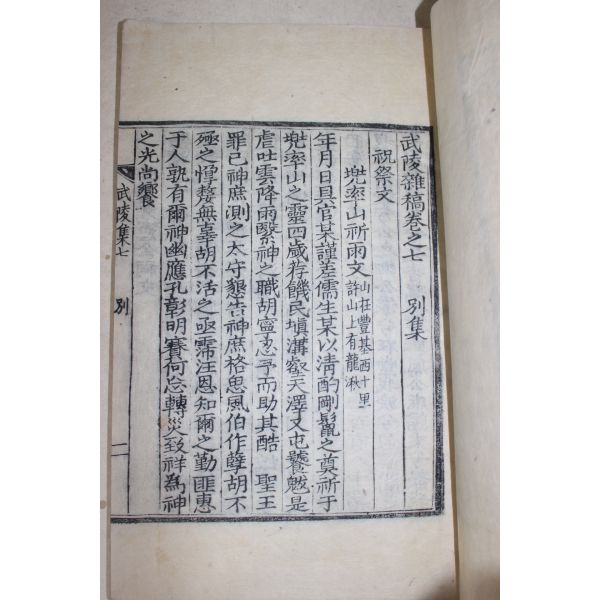 武陵雜稿卷之七 別集
祝祭文
兜率山祈雨文 山在豐基西十里
許山上有龍湫
年月日具官某謹差儒生某以淸酌剛鬣之奠祈于
兜率山之靈四歲荐饑民塡溝壑天澤又屯饕魃是
虐吐雲降雨繄神之職胡寧忍予而助其酷 聖王
罪己神庶測之太守懇告神庶格思風伯作孼胡不
殛之惸嫠無辜胡不活之亟霈汪恩知爾之勤匪惠
于人孰有爾神幽應孔彰明賽何忘轉災致祥爲神
之光尙饗
武陵集七 別 一